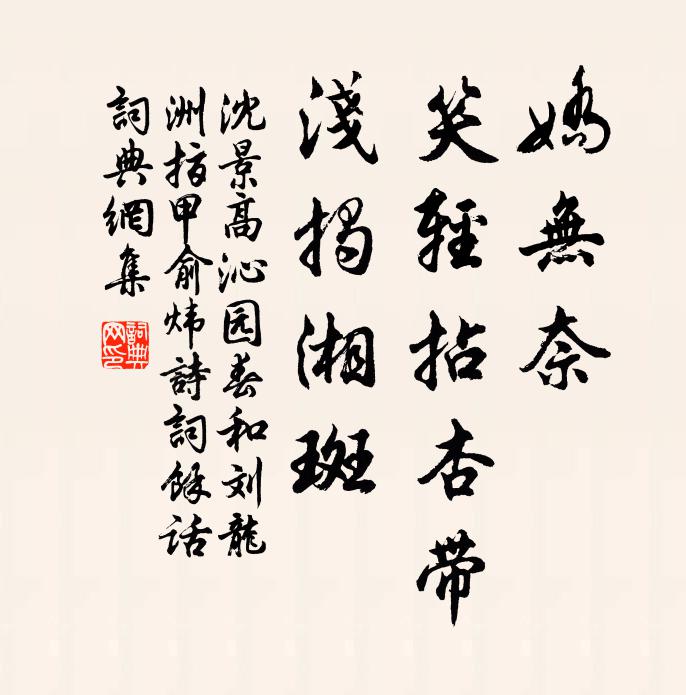 嬌無奈
笑輕拈杏带
淺揭湘斑
沈景高沁园春和刘龍
洲指甲俞炜詩詞餘话
詞典網集
詞典网印